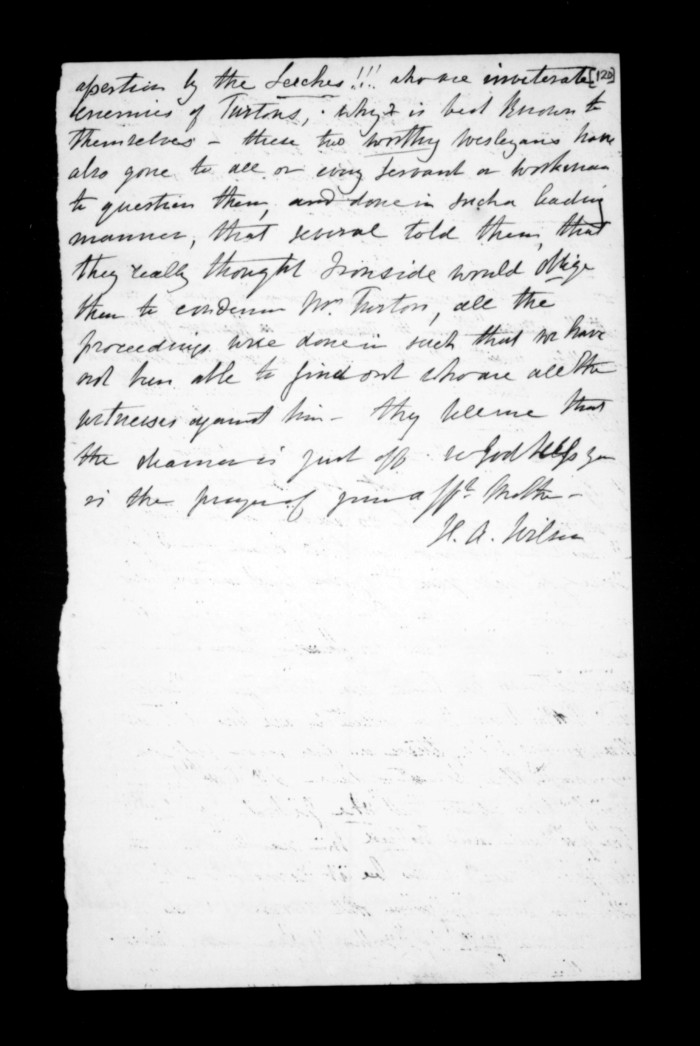 apertion by the Leeches!!! who are inveterate [120]
enemies of Turtons, why & is best known to
themselves - these two worthy Wesleyans have
also gone to all or every servant or workman
to question them, and done in such a leading
manner, that several told them, that
they really thought Ironside would oblige
them to condemn Mr. Turton, all the
proceedings were done in such that we have
not been able to find out who are all the
witnesses against him - they believe that
the steamer is just off God help you
is the prayer of your afft. Mother -
H. A. Wilson